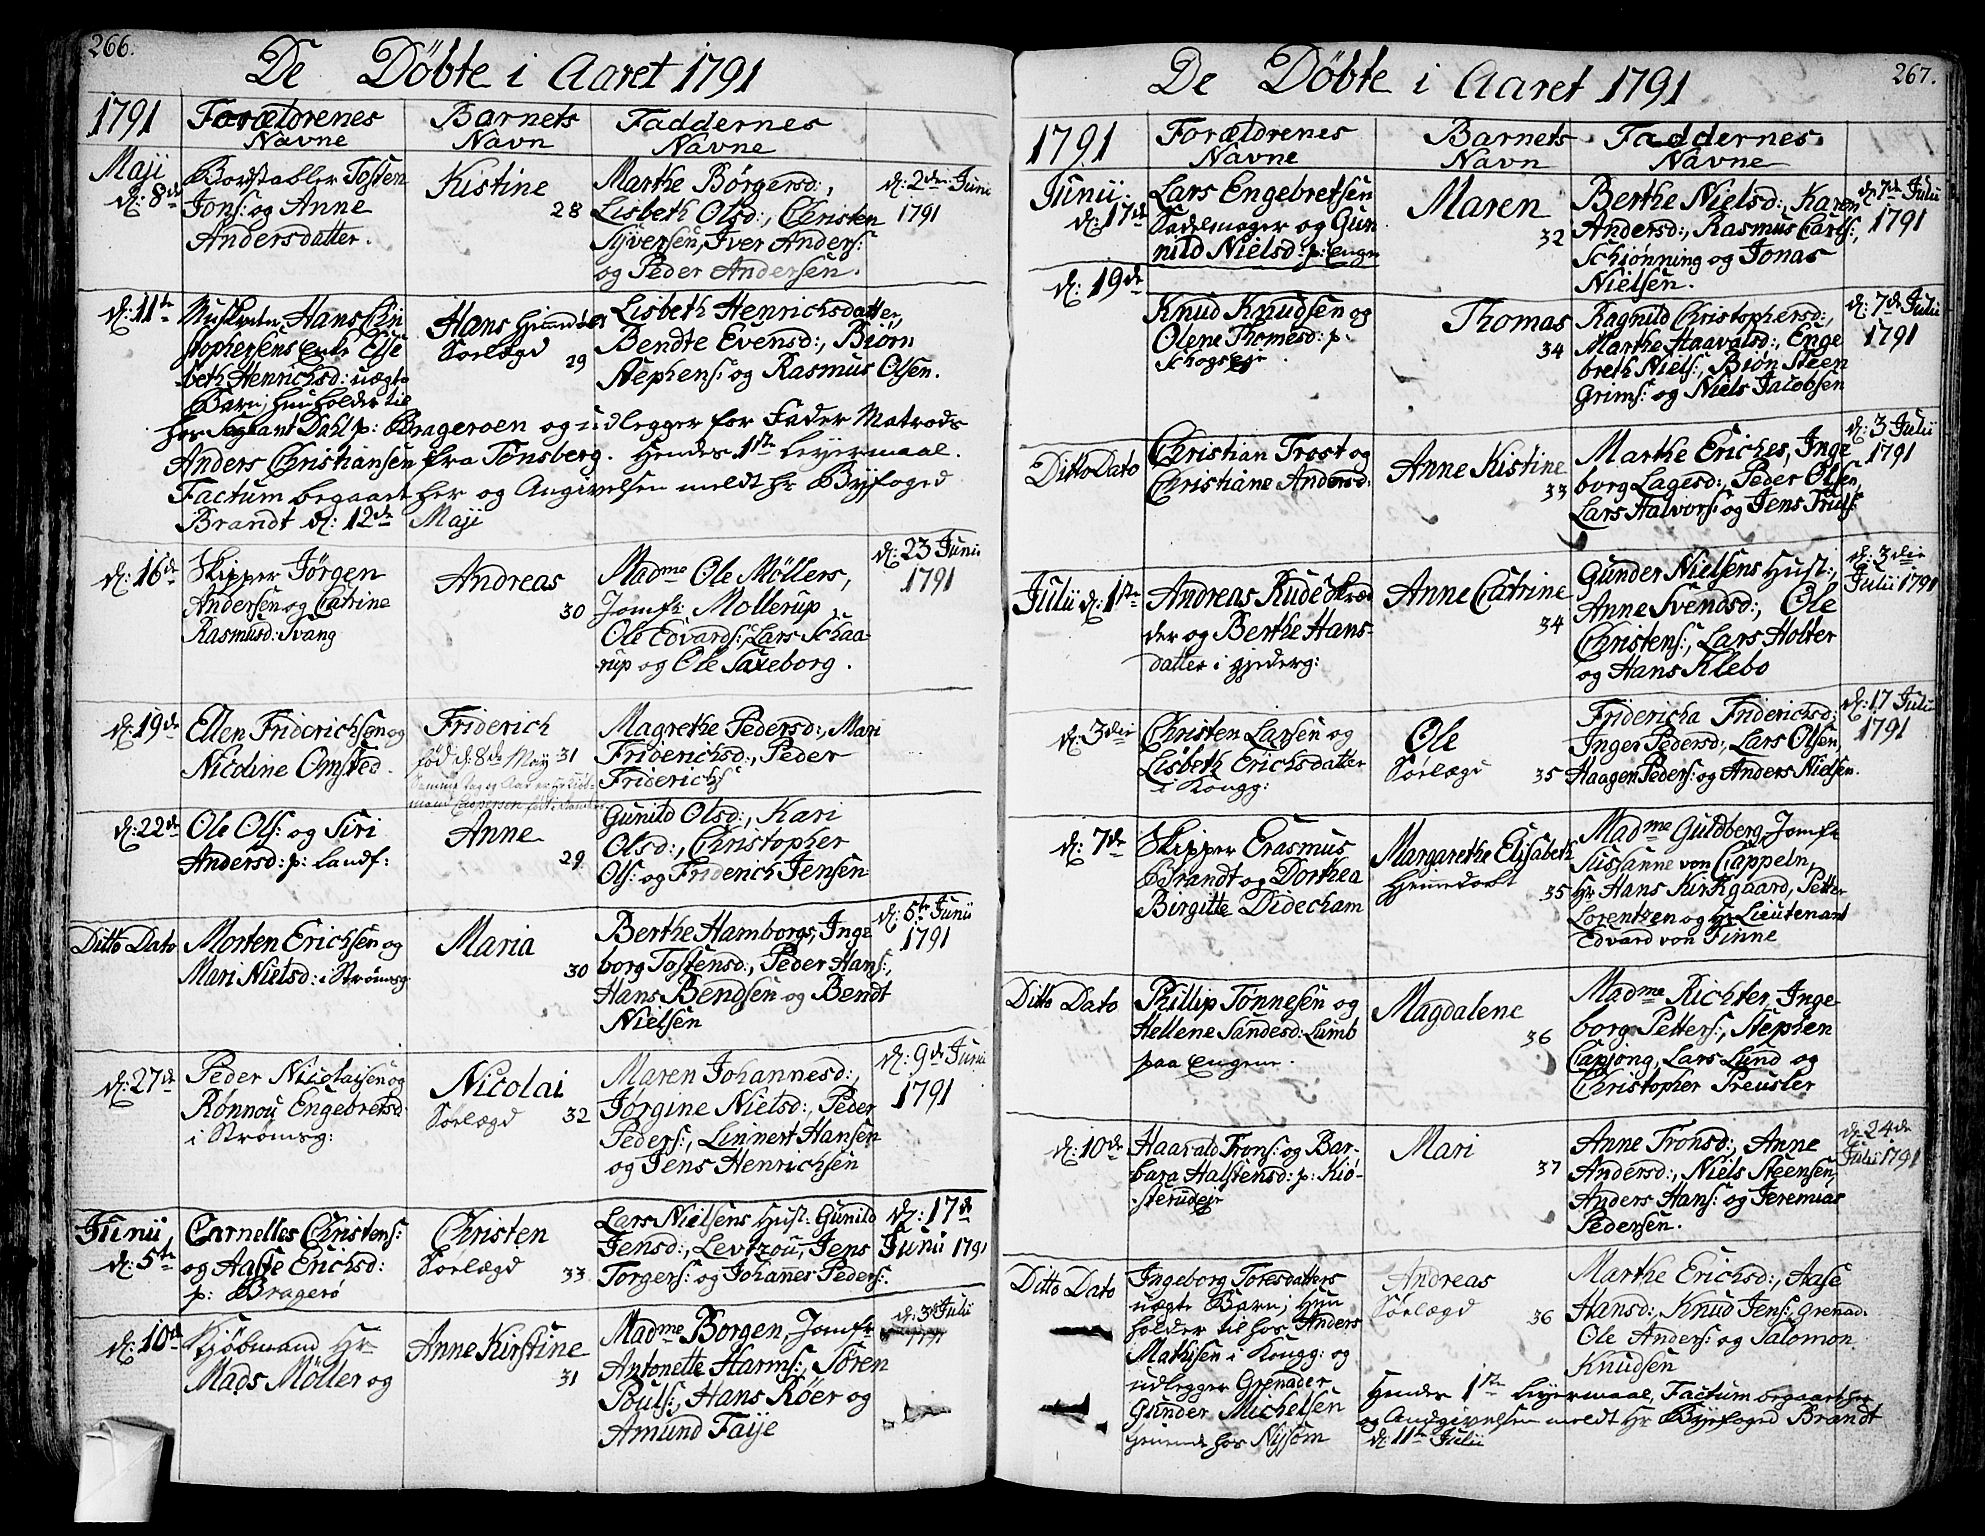 266.
De Döbte i Aaret 1791
1791 Forældrenes Navne Barnets Navn Faddernes Navne
Maji d: 8de
Bordstabler Tosten
Jons: og Anne
Andersdatter.
Kistine
28
Marthe Børgersd:,
Lisbeth Olsd:, Christen
Syversen, Iver Anders:
og Peder Andersen.
d: 2den Junii
1791
d: 11te
Hans Chri
stophersens Enke Else
beth Henrichsd: uægte
Barn; hun holder til
hos Dahl p: Brageroen og udlegger for Fader Matrods
Anders Christiansen fra Tønsberg. Hendes 1ste Leyermaal.
Factum begaaet her og Angivelsen meldt Hr Byfoged
Brandt d: 12de Maji
Hans Hiemedøbt
Sørlægd
29
Lisbeth Henrichsdatter,
Bendte Evensd:, Biørn
Stephens: og Rasmus Olsen.
d: 16de
Skipper Jörgen
Andersen og Catrine
Rasmusd: Svang
Andreas
30
Madme Ole Möllers,
Jomfr: Mollerup
Ole Edvards:, Lars Schaa-
rup og Ole Saxeborg.
d: 23 Junii
1791
d: 19de
Ellen Friderichsen og
Nicoline Omsted.
Friderich
fød d: 8de May 31
Magrethe Pedersd:, Mari
Friderichsd:, Peder
Friderichs
d: 22de
Ole Ols: og Siri
Andersd: p: Landf:
Anne
29
Gunild Olsd:, Kari
Olsd:, Christopher
Ols: og Friderich Jensen
Ditto Dato
Morten Erichsen og
Mari Nielsd: i Strømsg
Maria
30
Berthe Hamborgs, Inge
borg Tostensd:, Peder Hans:,
Hans Bendsen og Bendt
Nielsen
d: 5te Junii
1791
d: 27de
Peder Nicolaisen og
Rønnou Engebretsd:
i Strømsg:
Nicolai
Sørlægd 32
Maren Johannesd:,
Jørgine Nielsd:, Peder
Peders:, Linnert Hansen
og Jens Henrichsen
d: 9de Junii
1791
Junii d: 5te
Carnelles Christens:
og Aasse Erichsd:
p: Bragerø
Christen
Sørlægd 33
Lars Nielsens Hust: Gunild
Jensd:, Levtzou, Jens
Torgers: og Johannes Peders:
d: 17de
Junii 1791
d: 10de
Kjøbmand Hr
Mads Möller og
Anne Kirstine
31
Madme Borgen, Jomfr
Antonette Harms:, Sören
Pouls:, Hans Röer og
Amund Faye
d: 3de Julii
1791
267.
De Döbte i Aaret 1791
1791 Forældrenes Navne Barnets Navn Faddernes Navne
Junii d: 17de
Lars Engebretsen
Sadelmager og Gun
nild Nielsd: p: Engn
Maren
32
Berthe Nielsd:, Karen
Andersd:, Rasmus Carls:,
Schiønning og Jonas
Nielsen.
d: 7de Julii
1791
d: 19de
Knud Knudsen og
Olene Thomesd: p:
Skogseje.
Thomas
34
Ragnild Christophersd:,
Marthe Haavalsd:, Enge
breth Niels:, Biøn Steen
Grims: og Niels Jacobsen
d: 7de Julii
1791
Ditto Dato
Christian Trost og
Christiane Andersd:
Anne Kistine
33
Marthe Eriches, Inge
borg Lagesd:, Peder Olsen,
Lars Halvors: og Jens Truls:
d: 3 Julii
1791
Julii d: 1ste
Andreas Rude Skræd
der og Berthe Hans-
datter i Gjederg:
Anne Catrine
34
Gunder Nielsens Hust:,
Anne Svendsd:, Ole
Christens:, Lars Holter
og Hans Klebo
d: 3die
Julii 1791
d: 3die
Christen Larsen og
Lisbeth Erichsdatter
i Kongg:
Ole
Sørlægd 35
Fridericha Friderichsd:
Inger Pedersd:, Lars Olsen,
Haagen Peders: og Anders Nielsen.
d: 17 Julii
1791
d: 7de
Skipper Erasmus
Brandt og Dorthea
Birgitte Didecham
Margarethe Elisabeth
Hiemedøbt 35
Madme Guldberg, Jomfr
Susanne von Cappeln,
Hr Hans Kirkgaard, Petter
Lorentzen og Hr Lieutenant
Edvard von Finne
Ditto Dato
Phillip Tönnesen og
Hellene Sandesd: Lumb
paa Engene.
Magdalene
36
Madme Richter, Inge-
borg Petters:, Stephen
Capjong, Lars Lund og
Christopher Preusler
d: 10de
Haavald Trons: og Bar-
bara Halstensd: p: Kiø-
sterudeje
Mari
37
Anne Tronsd:, Anne
Andersd:, Niels Steensen,
Anders Hans: og Jeremias
Pedersen.
d: 24de
Julii 1791
Ditto Dato
Ingeborg Toresdatters
uægte Barn; Hun
holder til hos Anders
Mathisen i Kongg: og
udlegger Grenader
Gunder Michelsen
hos Nyssom
Andreas
Sørlægd 36
Marthe Erichsd:, Aase
Hansd:, Knud Jens: Grenad:
Ole Anders: og Salomon
Knudsen
Hendes 1ste Leyermaal, Factum begaaet her
og Andgivelsen meldt Hr Byefoged Brandt
d: 11te Julii